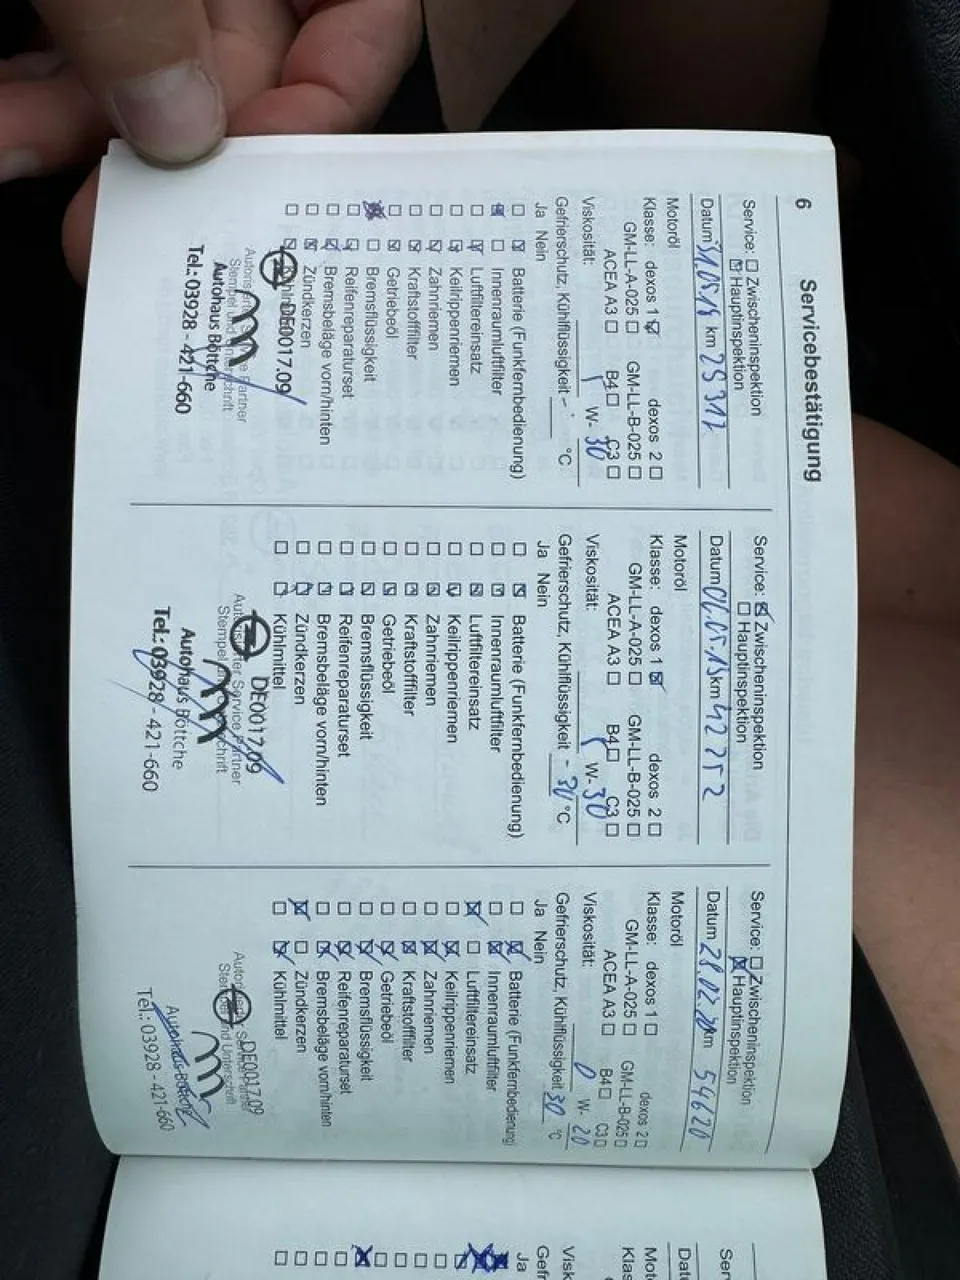 6 Servicebestätigung
Service: ☐ Zwischeninspektion
☒ Hauptinspektion
Datum 31.05.18 km 29312
Motoröl
Klasse: dexos 1 ☒ dexos 2 ☐
GM-LL-A-025 ☐ GM-LL-B-025 ☐
ACEA A3 ☐ B4 ☐ C3 ☐
Viskosität: W- 30
Gefrierschutz, Kühlflüssigkeit - °C
Ja Nein
☐ ☒ Batterie (Funkfernbedienung)
☒ ☐ Innenraumluftfilter
☐ ☒ Luftfiltereinsatz
☐ ☒ Keilrippenriemen
☐ ☒ Zahnriemen
☐ ☒ Kraftstofffilter
☐ ☒ Getriebeöl
☒ ☐ Bremsflüssigkeit
☐ ☒ Reifenreparaturset
☐ ☒ Bremsbeläge vorn/hinten
☐ ☒ Zündkerzen
☐ ☒
DE0017.09
Autorisierter Service Partner
Stempel und Unterschrift
Autohaus Böttche
Tel.: 03928 - 421-660
Service: ☒ Zwischeninspektion
☐ Hauptinspektion
Datum 06.05.19 km 42752
Motoröl
Klasse: dexos 1 ☒ dexos 2 ☐
GM-LL-A-025 ☐ GM-LL-B-025 ☐
ACEA A3 ☐ B4 ☐ C3 ☐
Viskosität: W- 30
Gefrierschutz, Kühlflüssigkeit - 30 °C
Ja Nein
☐ ☒ Batterie (Funkfernbedienung)
☐ ☒ Innenraumluftfilter
☐ ☒ Luftfiltereinsatz
☐ ☒ Keilrippenriemen
☐ ☒ Zahnriemen
☐ ☒ Kraftstofffilter
☐ ☒ Getriebeöl
☐ ☒ Bremsflüssigkeit
☐ ☒ Reifenreparaturset
☐ ☒ Bremsbeläge vorn/hinten
☐ ☒ Zündkerzen
☐ ☒ Kühlmittel
DE0017.09
Autorisierter Service Partner
Stempel und Unterschrift
Autohaus Böttche
Tel.: 03928 - 421-660
Service: ☐ Zwischeninspektion
☒ Hauptinspektion
Datum 28.02.20 km 54620
Motoröl
Klasse: dexos 1 ☐ dexos 2 ☐
GM-LL-A-025 ☐ GM-LL-B-025 ☐
ACEA A3 ☐ B4 ☐ C3 ☐
Viskosität: 0 W- 20
Gefrierschutz, Kühlflüssigkeit 30 °C
Ja Nein
☐ ☒ Batterie (Funkfernbedienung)
☐ ☒ Innenraumluftfilter
☒ ☐ Luftfiltereinsatz
☐ ☒ Keilrippenriemen
☐ ☒ Zahnriemen
☐ ☒ Kraftstofffilter
☐ ☒ Getriebeöl
☐ ☒ Bremsflüssigkeit
☐ ☒ Reifenreparaturset
☐ ☒ Bremsbeläge vorn/hinten
☒ ☐ Zündkerzen
☐ ☒ Kühlmittel
DE0017.09
Autorisierter Service Partner
Stempel und Unterschrift
Autohaus Böttche
Tel.: 03928 - 421-660
Ser
Dat
Mot
Klas
Visk
Gef
Ja